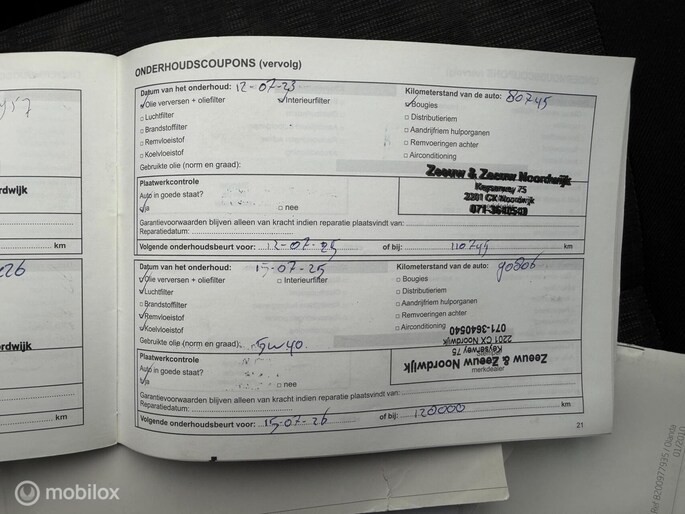 ONDERHOUDSCOUPONS (vervolg)
Datum van het onderhoud: 12-07-23
Kilometerstand van de auto: 80745
Olie verversen + oliefilter
Interieurfilter
Bougies
Luchtfilter
Distributieriem
Brandstoffilter
Aandrijfriem hulporganen
Remvloeistof
Remvoeringen achter
Koelvloeistof
Airconditioning
Gebruikte olie (norm en graad):
Zeeuw & Zeeuw Noordwijk
Keyserway 75
2201 CX Noordwijk
071-3640540
Plaatwerkcontrole
Auto in goede staat?
ja
nee
Garantievoorwaarden blijven alleen van kracht indien reparatie plaatsvindt van:
Reparatiedatum:
Volgende onderhoudsbeurt voor: 12-07-25 of bij: 110745 km
Datum van het onderhoud: 15-07-25
Kilometerstand van de auto: 90806
Olie verversen + oliefilter
Interieurfilter
Bougies
Luchtfilter
Distributieriem
Brandstoffilter
Aandrijfriem hulporganen
Remvloeistof
Remvoeringen achter
Koelvloeistof
Airconditioning
Gebruikte olie (norm en graad): 5W40
Zeeuw & Zeeuw Noordwijk
Keyserway 75
2201 CX Noordwijk
071-3640540
merkdealer
Plaatwerkcontrole
Auto in goede staat?
ja
nee
Garantievoorwaarden blijven alleen van kracht indien reparatie plaatsvindt van:
Reparatiedatum:
Volgende onderhoudsbeurt voor: 15-07-26 of bij: 120000 km
21
rdwijk
km
026
rdwijk
km
Ref B200977935 / Olanda
01/2010
mobilox